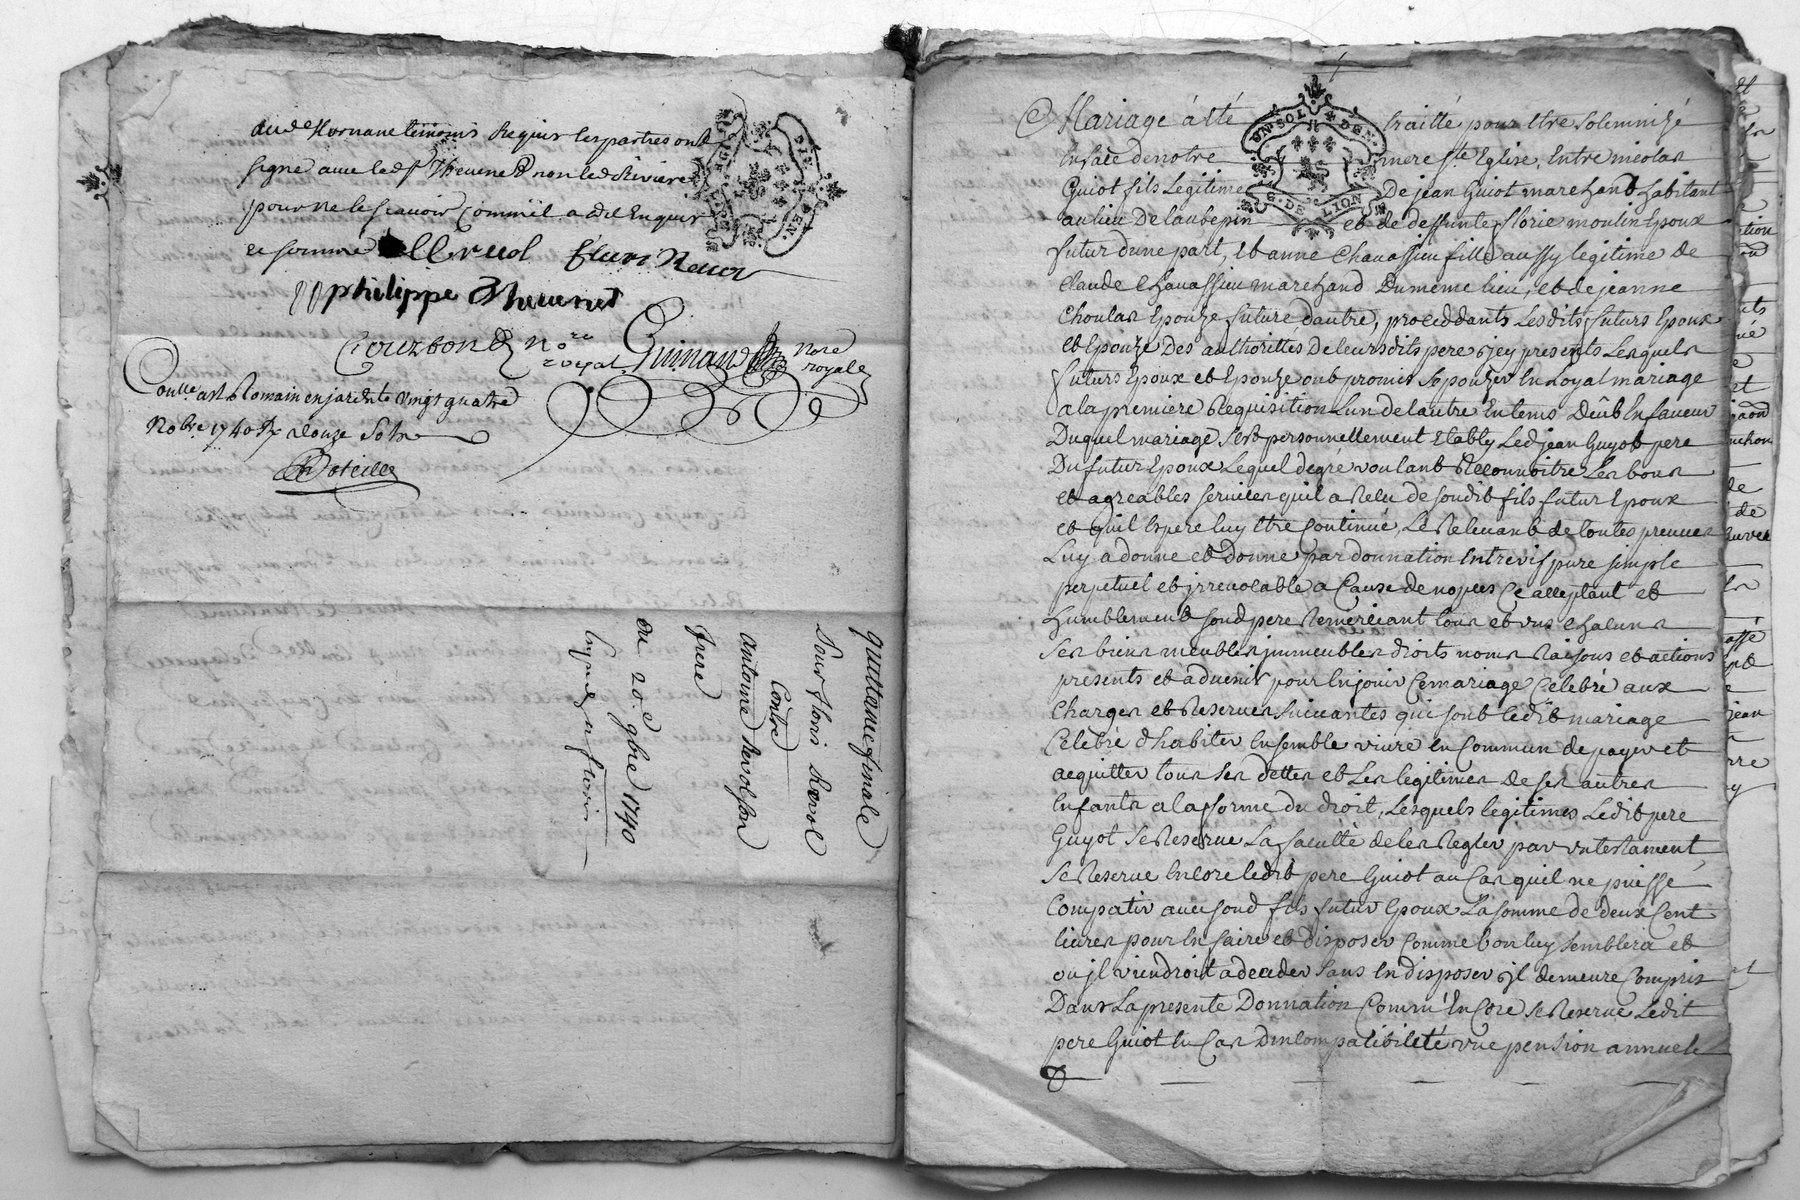 aud. Hornane temoins Requis les parties ont
signé avec led. Thevenet non led. Riviere
pour ne le scavoir comme il a dit Enquis
et somme
philippe Thevenet
Courbon No.re
royal Guinand Nore
royale
Conlle. a st Romain en jarest le vingt quatre
No.bre 1740 Rx douze sols
quittance finale
Sour floris
Contre
antoinne
frere
du 20.e 9bre 1740
Mariage à été UN SOL DEN. traitté pour Etre solemnizé
En face de notre mere s.te Eglise, Entre nicolas
Guiot fils Legitime De jean Guiot marchand habitant
au lieu De laubepin G. DE LION et de deffunte florie moulin Epoux
futur dune part, et anne Chavassieu fille aussy legitime de
Claude Chavassieu marchand Du même lieu, et de jeanne
Choulas Epouze future dautre, proceddants Lesdits futurs Epoux
et Epouze Des authorittés De leursdits pere jcy presents Lesquels
futurs Epoux et Epouze ont promis Sepouzer En Loyal mariage
a la premiere Requisition Lun de lautre En tems Deub En faveur
Duquel mariage, sest personnellement Etably Led jean Guyot pere
Du futur Epoux Lequel de gré voulant Reconnoitre Les bons
et agreables services quil a Recu de soudit fils futur Epoux
et quil Espere luy Etre Continué, Le Relevant de toutes preuves
Luy a donné et Donne par donnation Entrevif pure simple
perpetuel et jrrevocable a Cause de nopces Ce acceptant et
humblement soud pere Remerciant tous et uns chacuns
Ses biens meubles jmmeubles droits noms Raisons et actions
présents et advenir pour En jouir Ce mariage Célebré aux
Charges et Reserves suivantes qui sont ledit mariage
Célébré d'habiter Ensemble vivre En Commun de payer et
acquitter tous ses dettes et Les legitimes de ses autres
Enfants a la forme du droit, Lesquels legitimes Ledit pere
Guyot se Reserve La faculté de les Regler par un testament,
Se Reserve Encore ledit pere Guiot au Cas quil ne puisse
Compatir avec soud fils futur Epoux La somme de deux Cent
livres pour En faire et disposer comme bon luy semblera et
ou jl viendroit a deceder sans En disposer jl demeure Compris
Dans La presente Donnation Comm' EnCore se Reserve Ledit
pere Guiot En Cas DinCompatibileté une pension annuele